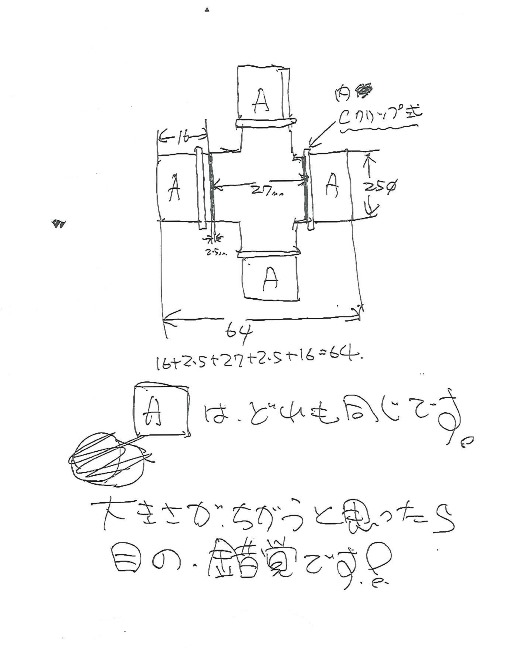 A
内
Cクリップ式
16
A
27mm
A
25φ
2.5m
A
64
16+2.5+27+2.5+16=64.
A は.どれも同じです。
大きさが.ちがうと思ったら
目の.錯覚です!。